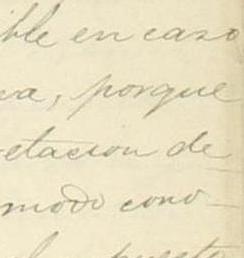 ible en caso
va, porque
etacion de
modo cono-
puesto